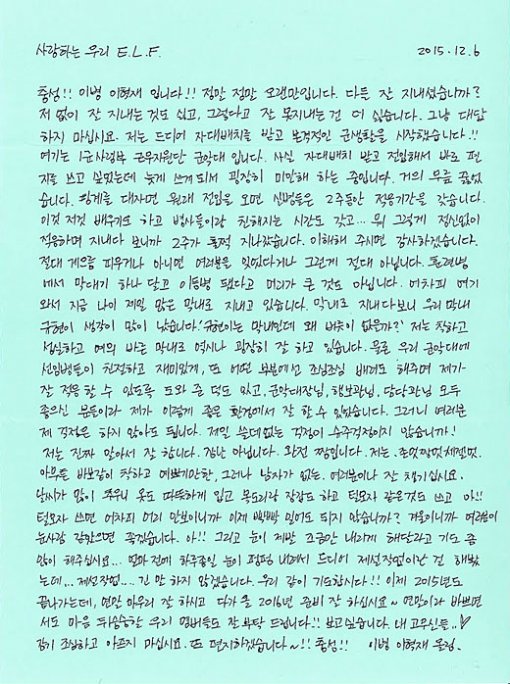 사랑하는 우리 E.L.F. 2015.12.6
충성!! 이병 이혁재 입니다!! 정말 정말 오랜만입니다. 다들 잘 지내셨습니까?
저 없이 잘 지내는 것도 싫고, 그렇다고 잘 못지내는 건 더 싫습니다. 그냥 대답
하지 마십시오. 저는 드디어 자대배치를 받고 본격적인 군생활을 시작했습니다.!!
여기는 1군사령부 근무지원단 군악대 입니다. 사실 자대배치 받고 전입해서 바로 편
지를 쓰고 싶었는데 늦게 쓰게 되서 굉장히 미안해 하는 중입니다. 거의 무릎 꿇었
습니다. 핑계를 대자면 원래 전입을 오면 신병들은 2주동안 적응기간을 갖습니다.
이것 저것 배우기도 하고 병사들이랑 친해지는 시간도 갖고... 뭐 그렇게 정신없이
적응하며 지내다 보니까 2주가 훌쩍 지나갔습니다. 이해해 주시면 감사하겠습니다.
절대 게으름 피우거나 아니면 여러분을 잊었다거나 그런게 절대 아닙니다. 훈련병
에서 막대기 하나 달고 이등병 됐다고 머리가 큰 것도 아닙니다. 어차피 여기
와서 지금 나이 제일 많은 막내로 지내고 있습니다. 막내로 지내다보니 우리 막내
규현이 생각이 많이 났습니다! 규현이는 막내인데 왜 버릇이 없을까? 저는 착하고
성실하고 예의 바른 막내로 역시나 굉장히 잘 하고 있습니다. 물론 우리 군악대에
선임병들이 친절하고 재미있게, 또 어떤 부분에선 조심조심 배려도 해주며 제가
잘 적응 할 수 있도록 도와 준 덕도 있고, 군악대장님, 행보관님, 담당관님 모두
좋으신 분들이라 제가 이렇게 좋은 환경에서 잘 할 수 있었습니다. 그러니 여러분
제 걱정은 하지 않아도 됩니다. 제일 쓸데없는 걱정이 슈주걱정이지 않습니까!
저는 진짜 알아서 잘 합니다. 겁나 아닙니다. 완전 짱입니다. 저는. 존멋짱멋체젤멋.
아무튼 바보같이 착하고 예쁘기만한, 그러나 남자가 없는. 여러분이나 잘 챙기십시오.
날씨가 많이 추우니 옷도 따뜻하게 입고 목도리랑 장갑도 하고 털모자 같은것도 쓰고 아!!
털모자 쓰면 어차피 머리 안보이니까 이제 빡빡 밀어도 되지 않습니까? 겨울이니까 여러분이
눈사람 같았으면 좋겠습니다. 아!! 그리고 눈이 제발 조금만 내리게 해달라고 기도 좀
많이 해주십시오... 얼마전에 하루종일 눈이 펑펑 내려서 드디어 제설작업이란 건 해봤
는데... 제설작업.... 긴 말 하지 않겠습니다. 우리 같이 기도합시다!! 이제 2015년도
끝나가는데, 연말 마무리 잘 하시고 다가올 2016년 준비 잘 하십시오~ 연말이라 바쁘면
서도 마음 뒤숭숭한 우리 멤버들도 잘 부탁 드립니다!! 보고싶습니다. 내 고우신들..♡
감기 조심하고 아프지 마십시오. 또 편지하겠습니다~!! 충성!! 이병 이혁재 올림.